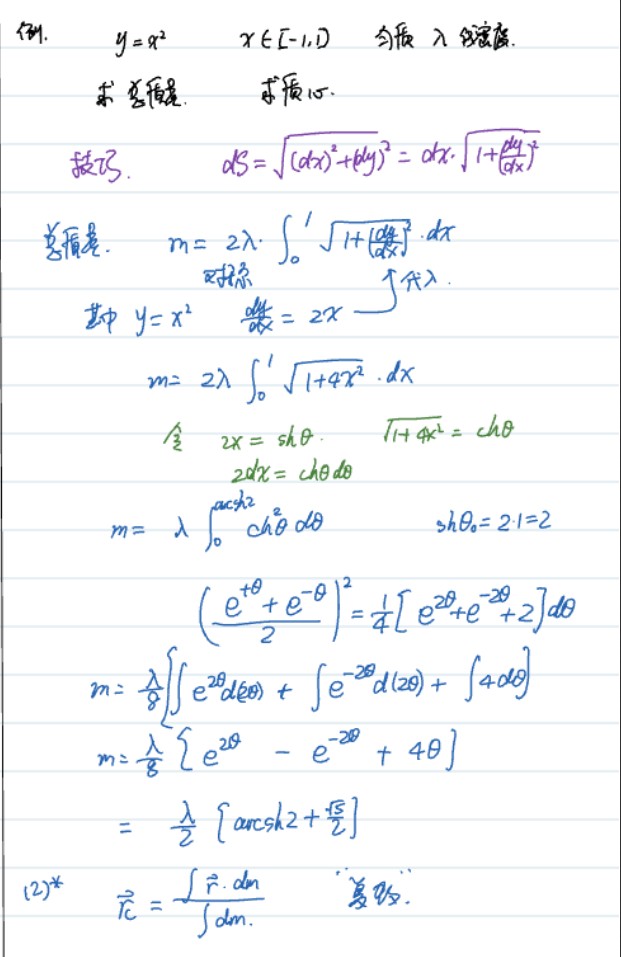 例. y=x² x∈[-1,1) 匀质 λ 线密度.
求 总质量. 求质心.
技巧. dS=√((dx)²+(dy)²) = dx·√(1+(dy/dx)²)
总质量. m= 2λ·∫₀¹ √(1+(dy/dx)²)·dx
对称 代入.
其中 y=x² dy/dx = 2x
m= 2λ ∫₀¹ √(1+4x²) ·dx
令 2x = shθ. √(1+4x²) = chθ
2dx = chθdθ
m= λ ∫₀^(arcsh2) ch²θ dθ shθ₀=2·1=2
((e^(+θ)+e^(-θ))/2)² = 1/4[e^(2θ)+e^(-2θ)+2]dθ
m= λ/8[∫e^(2θ)d(2θ) + ∫e^(-2θ)d(2θ) + ∫4dθ]
m= λ/8 [e^(2θ) - e^(-2θ) + 4θ]
= λ/2 [arcsh2+√5/2]
(2)* r⃗c = ∫r⃗·dm/∫dm.